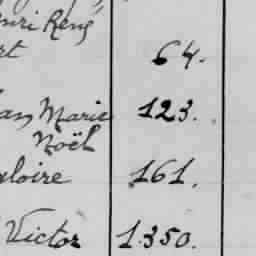 enri René
rt 64.
an Marie 123.
Noël
gloire 161.
Victor 1350.